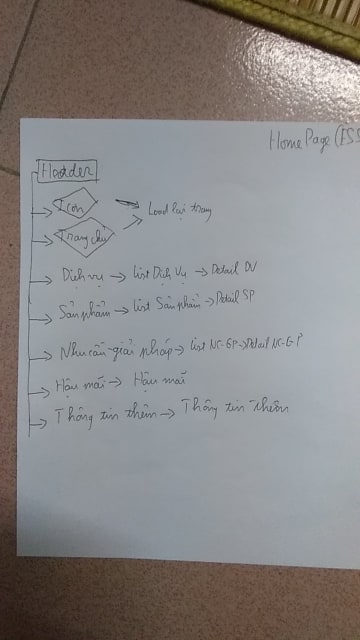 Home Page (ISS
Header
Icon → Load lại trang
Trang chủ
Dịch vụ → List Dịch Vụ → Detail DV
Sản phẩm → List Sản phẩm → Detail SP
Nhu cầu - giải pháp → List NC-GP → Detail NC-GP
Hậu mãi → Hậu mãi
Thông tin thêm → Thông tin thêm